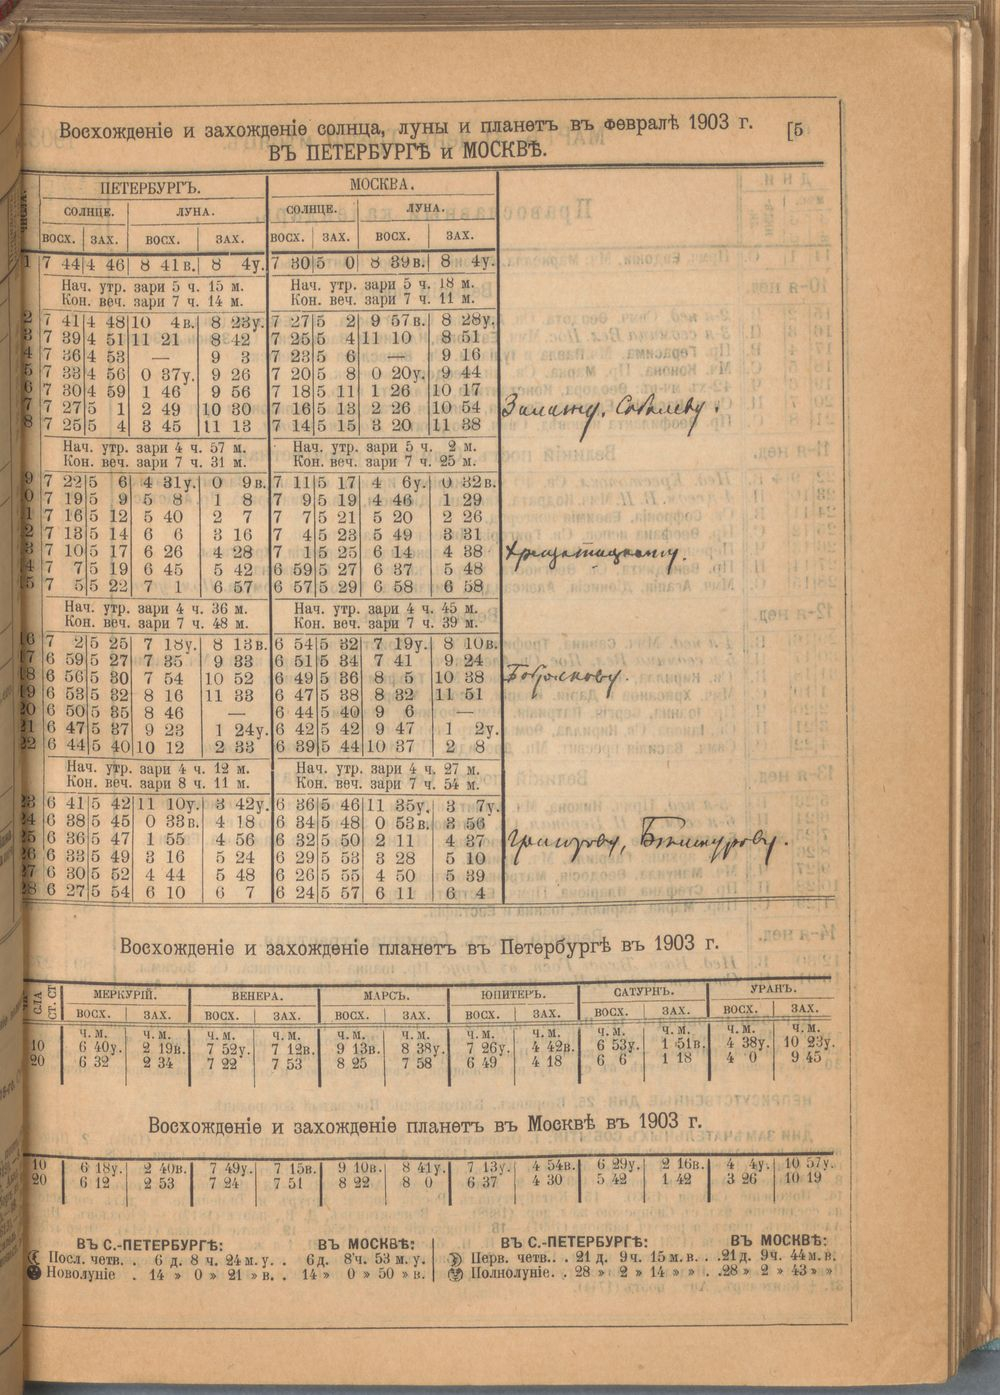 Восхожденіе и захожденіе солнца, луны и планетъ въ февралѣ 1903 г. [5
ВЪ ПЕТЕРБУРГѢ и МОСКВѢ.
ПЕТЕРБУРГЪ. МОСКВА.
СОЛНЦЕ. ЛУНА. СОЛНЦЕ. ЛУНА.
ВОСХ. ЗАХ. ВОСХ. ЗАХ. ВОСХ. ЗАХ. ВОСХ. ЗАХ.
1 7 44 4 46 8 41в. 8 4у. 7 30 5 0 8 39в. 8 4у.
Нач. утр. зари 5 ч. 15 м. Нач. утр. зари 5 ч. 18 м.
Кон. веч. зари 7 ч. 14 м. Кон. веч. зари 7 ч. 11 м.
2 7 41 4 48 10 4в. 8 23у. 7 27 5 2 9 57в. 8 28у.
3 7 39 4 51 11 21 8 42 7 25 5 4 11 10 8 51
4 7 36 4 53 — 9 3 7 23 5 6 — 9 16
5 7 33 4 56 0 37у. 9 26 7 20 5 8 0 20у. 9 44
6 7 30 4 59 1 46 9 56 7 18 5 11 1 26 10 17
7 7 27 5 1 2 49 10 30 7 16 5 13 2 26 10 54
8 7 25 5 4 3 45 11 13 7 14 5 15 3 20 11 38
Нач. утр. зари 4 ч. 57 м. Нач. утр. зари 5 ч. 2 м.
Кон. веч. зари 7 ч. 31 м. Кон. веч. зари 7 ч. 25 м.
9 7 22 5 6 4 31у. 0 9в. 7 11 5 17 4 6у. 0 32в.
0 7 19 5 9 5 8 1 8 7 9 5 19 4 46 1 29
1 7 16 5 12 5 40 2 7 7 7 5 21 5 20 2 26
2 7 13 5 14 6 6 3 16 7 4 5 23 5 49 3 31
3 7 10 5 17 6 26 4 28 7 1 5 25 6 14 4 38
4 7 7 5 19 6 45 5 42 6 59 5 27 6 37 5 48
5 7 5 5 22 7 1 6 57 6 57 5 29 6 58 6 58
Нач. утр. зари 4 ч. 36 м. Нач. утр. зари 4 ч. 45 м.
Кон. веч. зари 7 ч. 48 м. Кон. веч. зари 7 ч. 39 м.
16 7 2 5 25 7 18у. 8 13в. 6 54 5 32 7 19у. 8 10в.
17 6 59 5 27 7 35 9 33 6 51 5 34 7 41 9 24
18 6 56 5 30 7 54 10 52 6 49 5 36 8 5 10 38
19 6 53 5 32 8 16 11 33 6 47 5 38 8 32 11 51
20 6 50 5 35 8 46 — 6 44 5 40 9 6 —
21 6 47 5 37 9 23 1 24у. 6 42 5 42 9 47 1 2у.
22 6 44 5 40 10 12 2 33 6 39 5 44 10 37 2 8
Нач. утр. зари 4 ч. 12 м. Нач. утр. зари 4 ч. 27 м.
Кон. веч. зари 8 ч. 11 м. Кон. веч. зари 7 ч. 54 м.
23 6 41 5 42 11 10у. 3 42у. 6 36 5 46 11 35у. 3 7у.
24 6 38 5 45 0 33в. 4 18 6 34 5 48 0 53в. 3 56
25 6 36 5 47 1 55 4 56 6 32 5 50 2 11 4 37
26 6 33 5 49 3 16 5 24 6 29 5 53 3 28 5 10
27 6 30 5 52 4 44 5 48 6 26 5 55 4 50 5 39
28 6 27 5 54 6 10 6 7 6 24 5 57 6 11 6 4
Восхожденіе и захожденіе планетъ въ Петербургѣ въ 1903 г.
МЕРКУРІЙ. ВЕНЕРА. МАРСЪ. ЮПИТЕРЪ. САТУРНЪ. УРАНЪ.
ВОСХ. ЗАХ. ВОСХ. ЗАХ. ВОСХ. ЗАХ. ВОСХ. ЗАХ. ВОСХ. ЗАХ. ВОСХ. ЗАХ.
ч. м. ч. м. ч. м. ч. м. ч. м. ч. м. ч. м. ч. м. ч. м. ч. м. ч. м. ч. м.
10 6 40у. 2 19в. 7 52у. 7 12в. 9 13в. 8 38у. 7 26у. 4 42в. 6 53у. 1 51в. 4 38у. 10 23у.
20 6 32 2 34 7 22 7 53 8 25 7 58 6 49 4 18 6 6 1 18 4 0 9 45
Восхожденіе и захожденіе планетъ въ Москвѣ въ 1903 г.
10 6 18у. 2 40в. 7 49у. 7 15в. 9 10в. 8 41у. 7 13у. 4 54в. 6 29у. 2 16в. 4 4у. 10 57у.
20 6 12 2 53 7 24 7 51 8 22 8 0 6 37 4 30 5 42 1 42 3 26 10 19
ВЪ С.-ПЕТЕРБУРГѢ: ВЪ МОСКВѢ: ВЪ С.-ПЕТЕРБУРГѢ: ВЪ МОСКВѢ:
Посл. четв. . 6 д. 8 ч. 24 м. у. . 6 д. 8 ч. 53 м. у. Перв. четв. . . 21 д. 9 ч. 15 м. в. . .21 д. 9 ч. 44 м. в.
Новолуніе . 14 » 0 » 21 » в. . 14 » 0 » 50 » в. Полнолуніе. . 28 » 2 » 14 » » . .28 » 2 » 43 » »